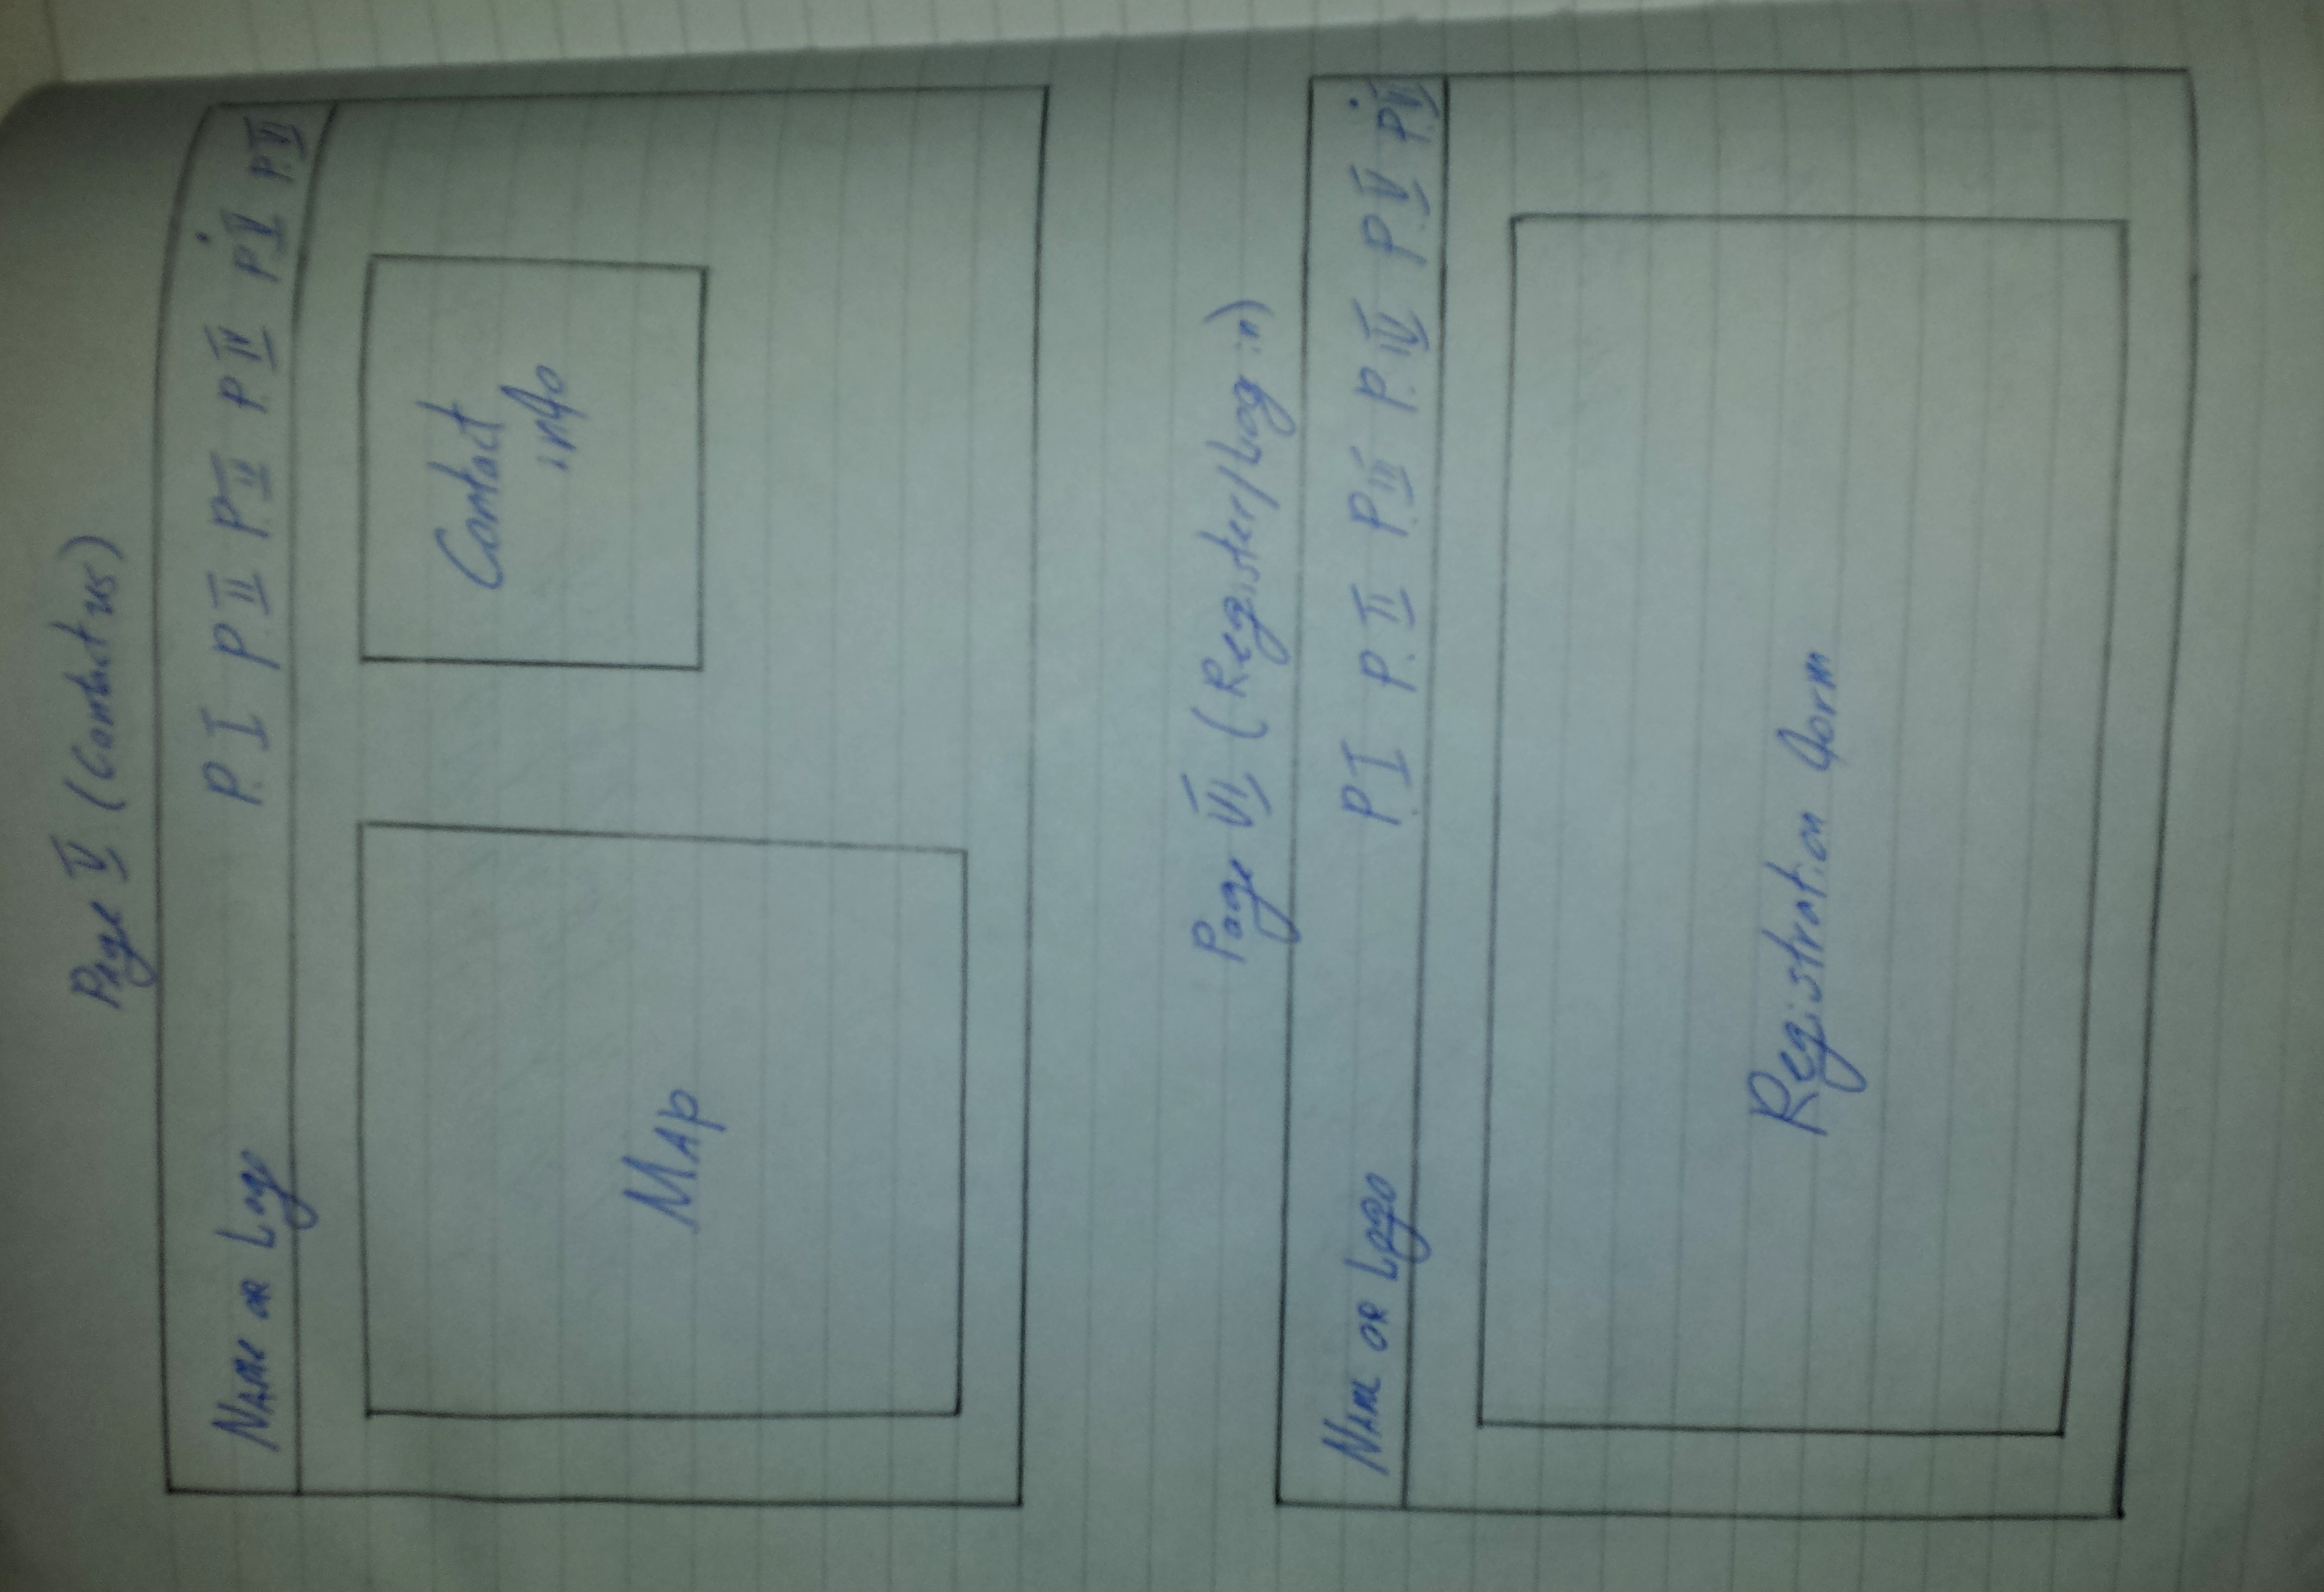 Page V (Contact us)
Name or Logo P. I P. II P. II P. IV P. V P. VI
Map
Contact
info
Page VI (Register/Log in)
Name or Logo P. I P. II P. III P. IV P. V P. VI
Registration form